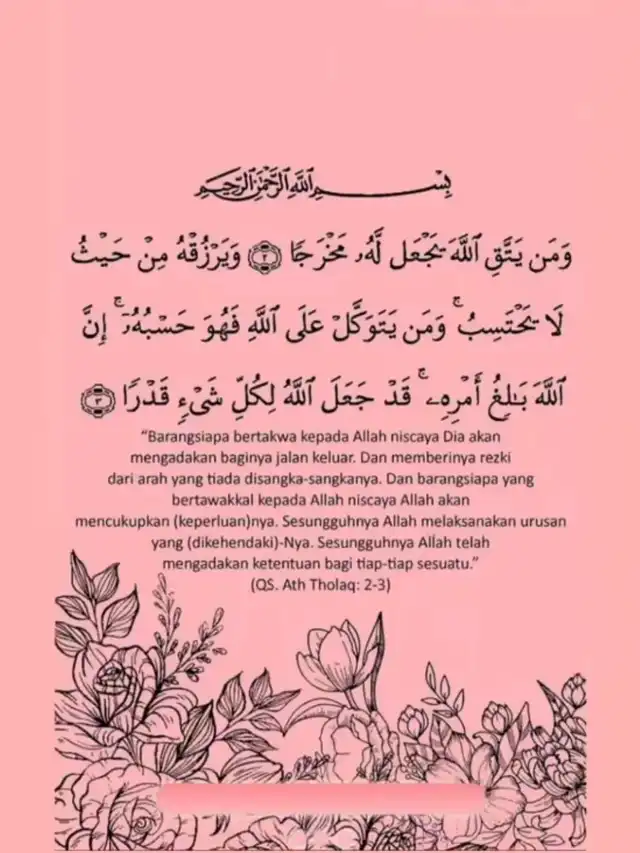 بِسْمِ اللَّهِ الرَّحْمَٰنِ الرَّحِيمِ
وَمَن يَتَّقِ ٱللَّهَ يَجْعَل لَّهُۥ مَخْرَجًا ۝٢ وَيَرْزُقْهُ مِنْ حَيْثُ
لَا يَحْتَسِبُ ۚ وَمَن يَتَوَكَّلْ عَلَى ٱللَّهِ فَهُوَ حَسْبُهُۥٓ ۚ إِنَّ
ٱللَّهَ بَـٰلِغُ أَمْرِهِۦ ۚ قَدْ جَعَلَ ٱللَّهُ لِكُلِّ شَىْءٍ قَدْرًا ۝٣
“Barangsiapa bertakwa kepada Allah niscaya Dia akan
mengadakan baginya jalan keluar. Dan memberinya rezki
dari arah yang tiada disangka-sangkanya. Dan barangsiapa yang
bertawakkal kepada Allah niscaya Allah akan
mencukupkan (keperluan)nya. Sesungguhnya Allah melaksanakan urusan
yang (dikehendaki)-Nya. Sesungguhnya Allah telah
mengadakan ketentuan bagi tiap-tiap sesuatu.”
(QS. Ath Tholaq: 2-3)